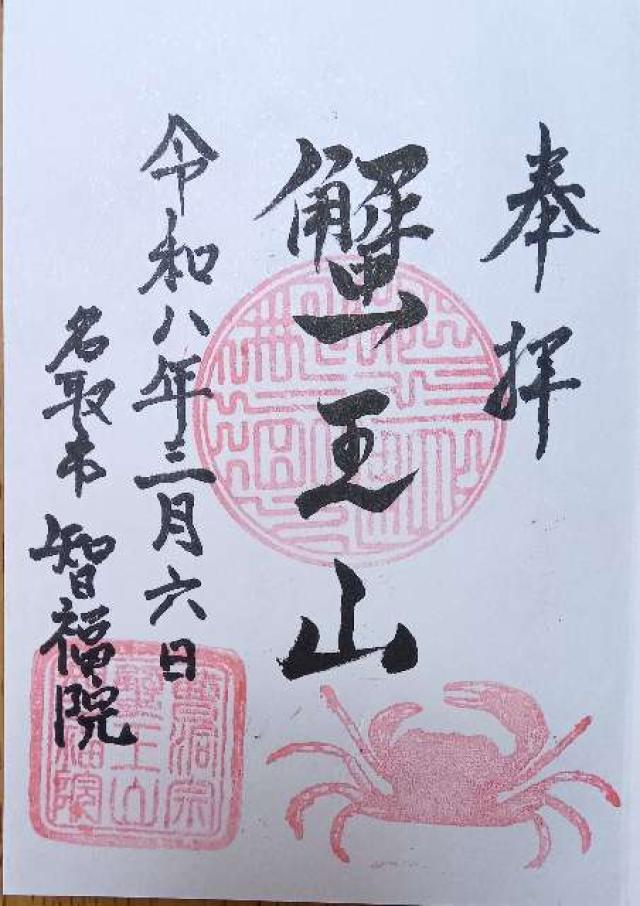 奉拝
蟹王山
令和八年三月六日
名取市 智福院
曹洞宗
蟹王山
智福院